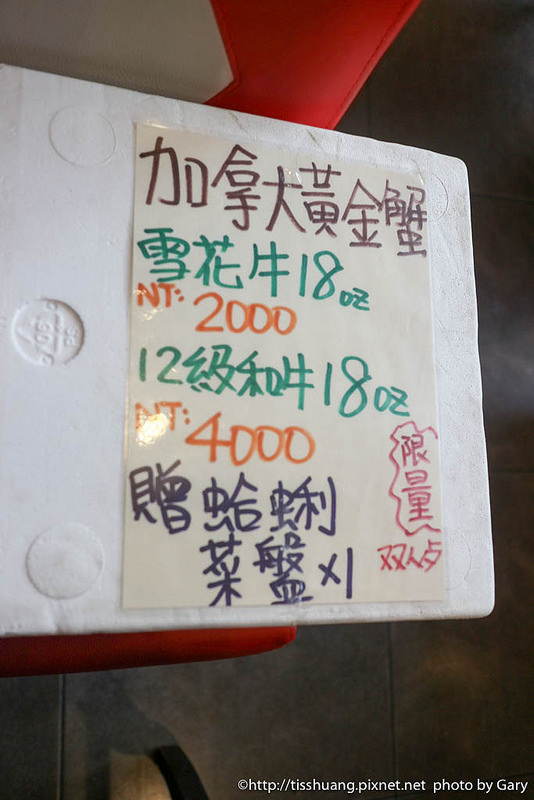 加拿大黃金蟹
雪花牛18oz
NT: 2000
12級和牛18oz
NT: 4000
限量
贈蛤蜊
双人歺
菜盤x1
©http://tisshuang.pixnet.net photo by Gary